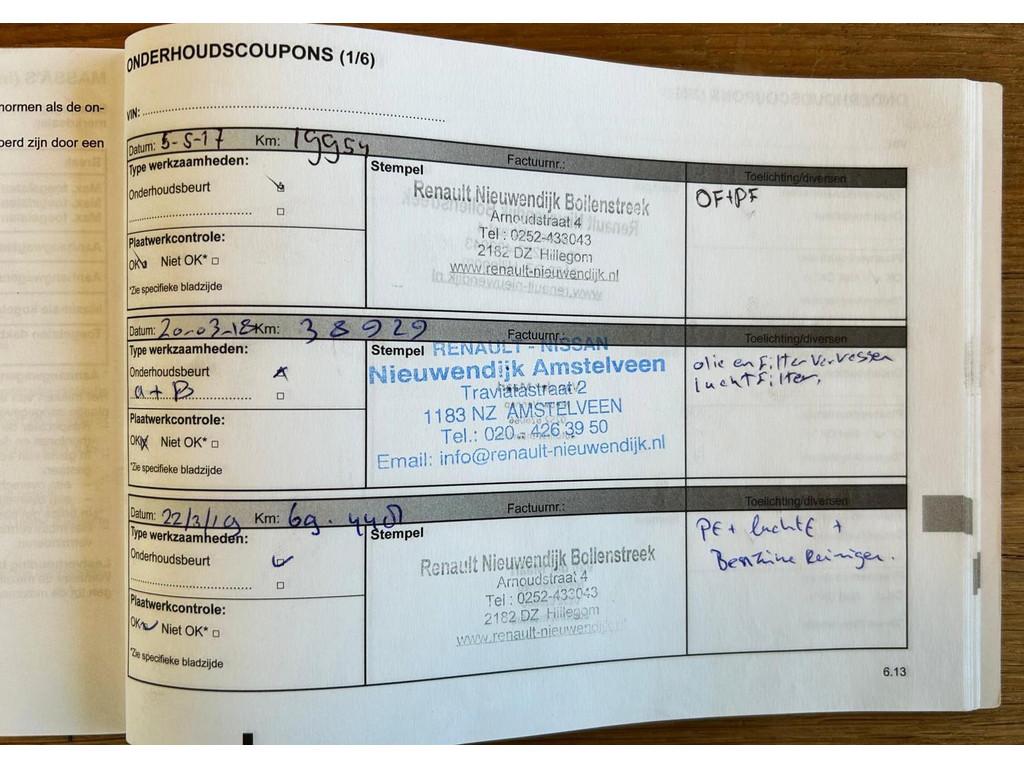 normen als de on-
oerd zijn door een
ONDERHOUDSCOUPONS (1/6)
VIN:
Datum: 5-5-17 Km: 19954 Factuurnr.:
Type werkzaamheden: Stempel Toelichting/diversen
Onderhoudsbeurt
Renault Nieuwendijk Bollenstreek
Arnoudstraat 4
Tel : 0252-433043
2182 DZ Hillegom
www.renault-nieuwendijk.nl
OF+PF
Plaatwerkcontrole:
OK Niet OK*
*Zie specifieke bladzijde
Datum: 20-03-18 Km: 38929 Factuurnr.:
Type werkzaamheden: Stempel Toelichting/diversen
Onderhoudsbeurt
a + B
RENAULT - NISSAN
Nieuwendijk Amstelveen
Traviatastraat 2
1183 NZ AMSTELVEEN
Tel.: 020 - 426 39 50
Email: info@renault-nieuwendijk.nl
olie en filter ververssen
luchtfilter,
Plaatwerkcontrole:
OK Niet OK*
*Zie specifieke bladzijde
Datum: 22/3/19 Km: 69. Factuurnr.:
Type werkzaamheden: Stempel Toelichting/diversen
Onderhoudsbeurt
Renault Nieuwendijk Bollenstreek
Arnoudstraat 4
Tel : 0252-433043
2182 DZ Hillegom
www.renault-nieuwendijk.nl
+ +
Reinigen.
Plaatwerkcontrole:
OK Niet OK*
*Zie specifieke bladzijde
6.13